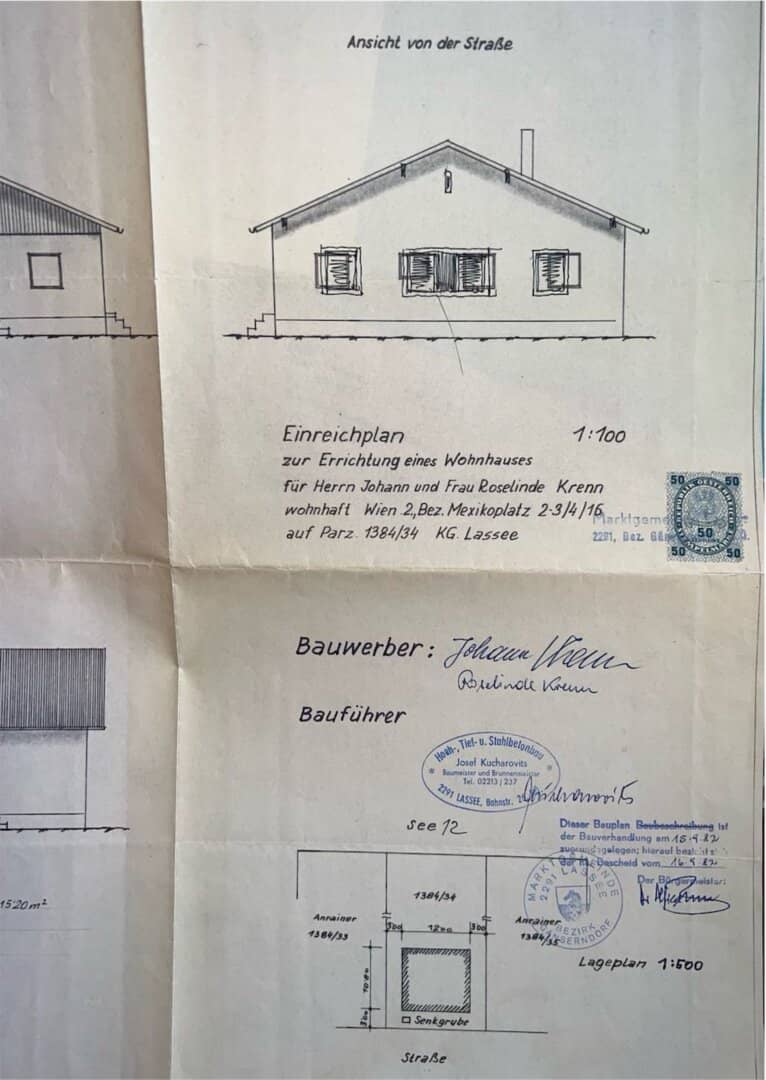 Ansicht von der Straße
Einreichplan 1:100
zur Errichtung eines Wohnhauses
für Herrn Johann und Frau Roselinde Krenn
wohnhaft Wien 2., Bez. Mexikoplatz 2-3/4/16
auf Parz. 1384/34 KG. Lassee
50 50
REPUBLIK ÖSTERREICH
50
50 50
Marktgeme
2291, Bez.
Bauwerber: Johann Krenn
Roselinde Krenn
Bauführer
Hoch-, Tief- u. Stahlbetonbau
Josef Kucharovits
Baumeister und Brunnenmeister
Tel. 02213/237
2291 LASSEE, Bahnstr.
Kucharovits
see 12
Dieser Bauplan Baubeschreibung ist
der Bauverhandlung am 15.4.82
zugrundegelegen; hierauf bezieht sich
der Bescheid vom 16.4.82
Der Bürgermeister:
MARKTGEMEINDE
2291 LASSEE
BEZIRK
GÄNSERNDORF
1384/34
Anrainer
1384/33
Anrainer
1384/35
300 1200 300
1520 m²
300
Senkgrube
Lageplan 1:500
Straße